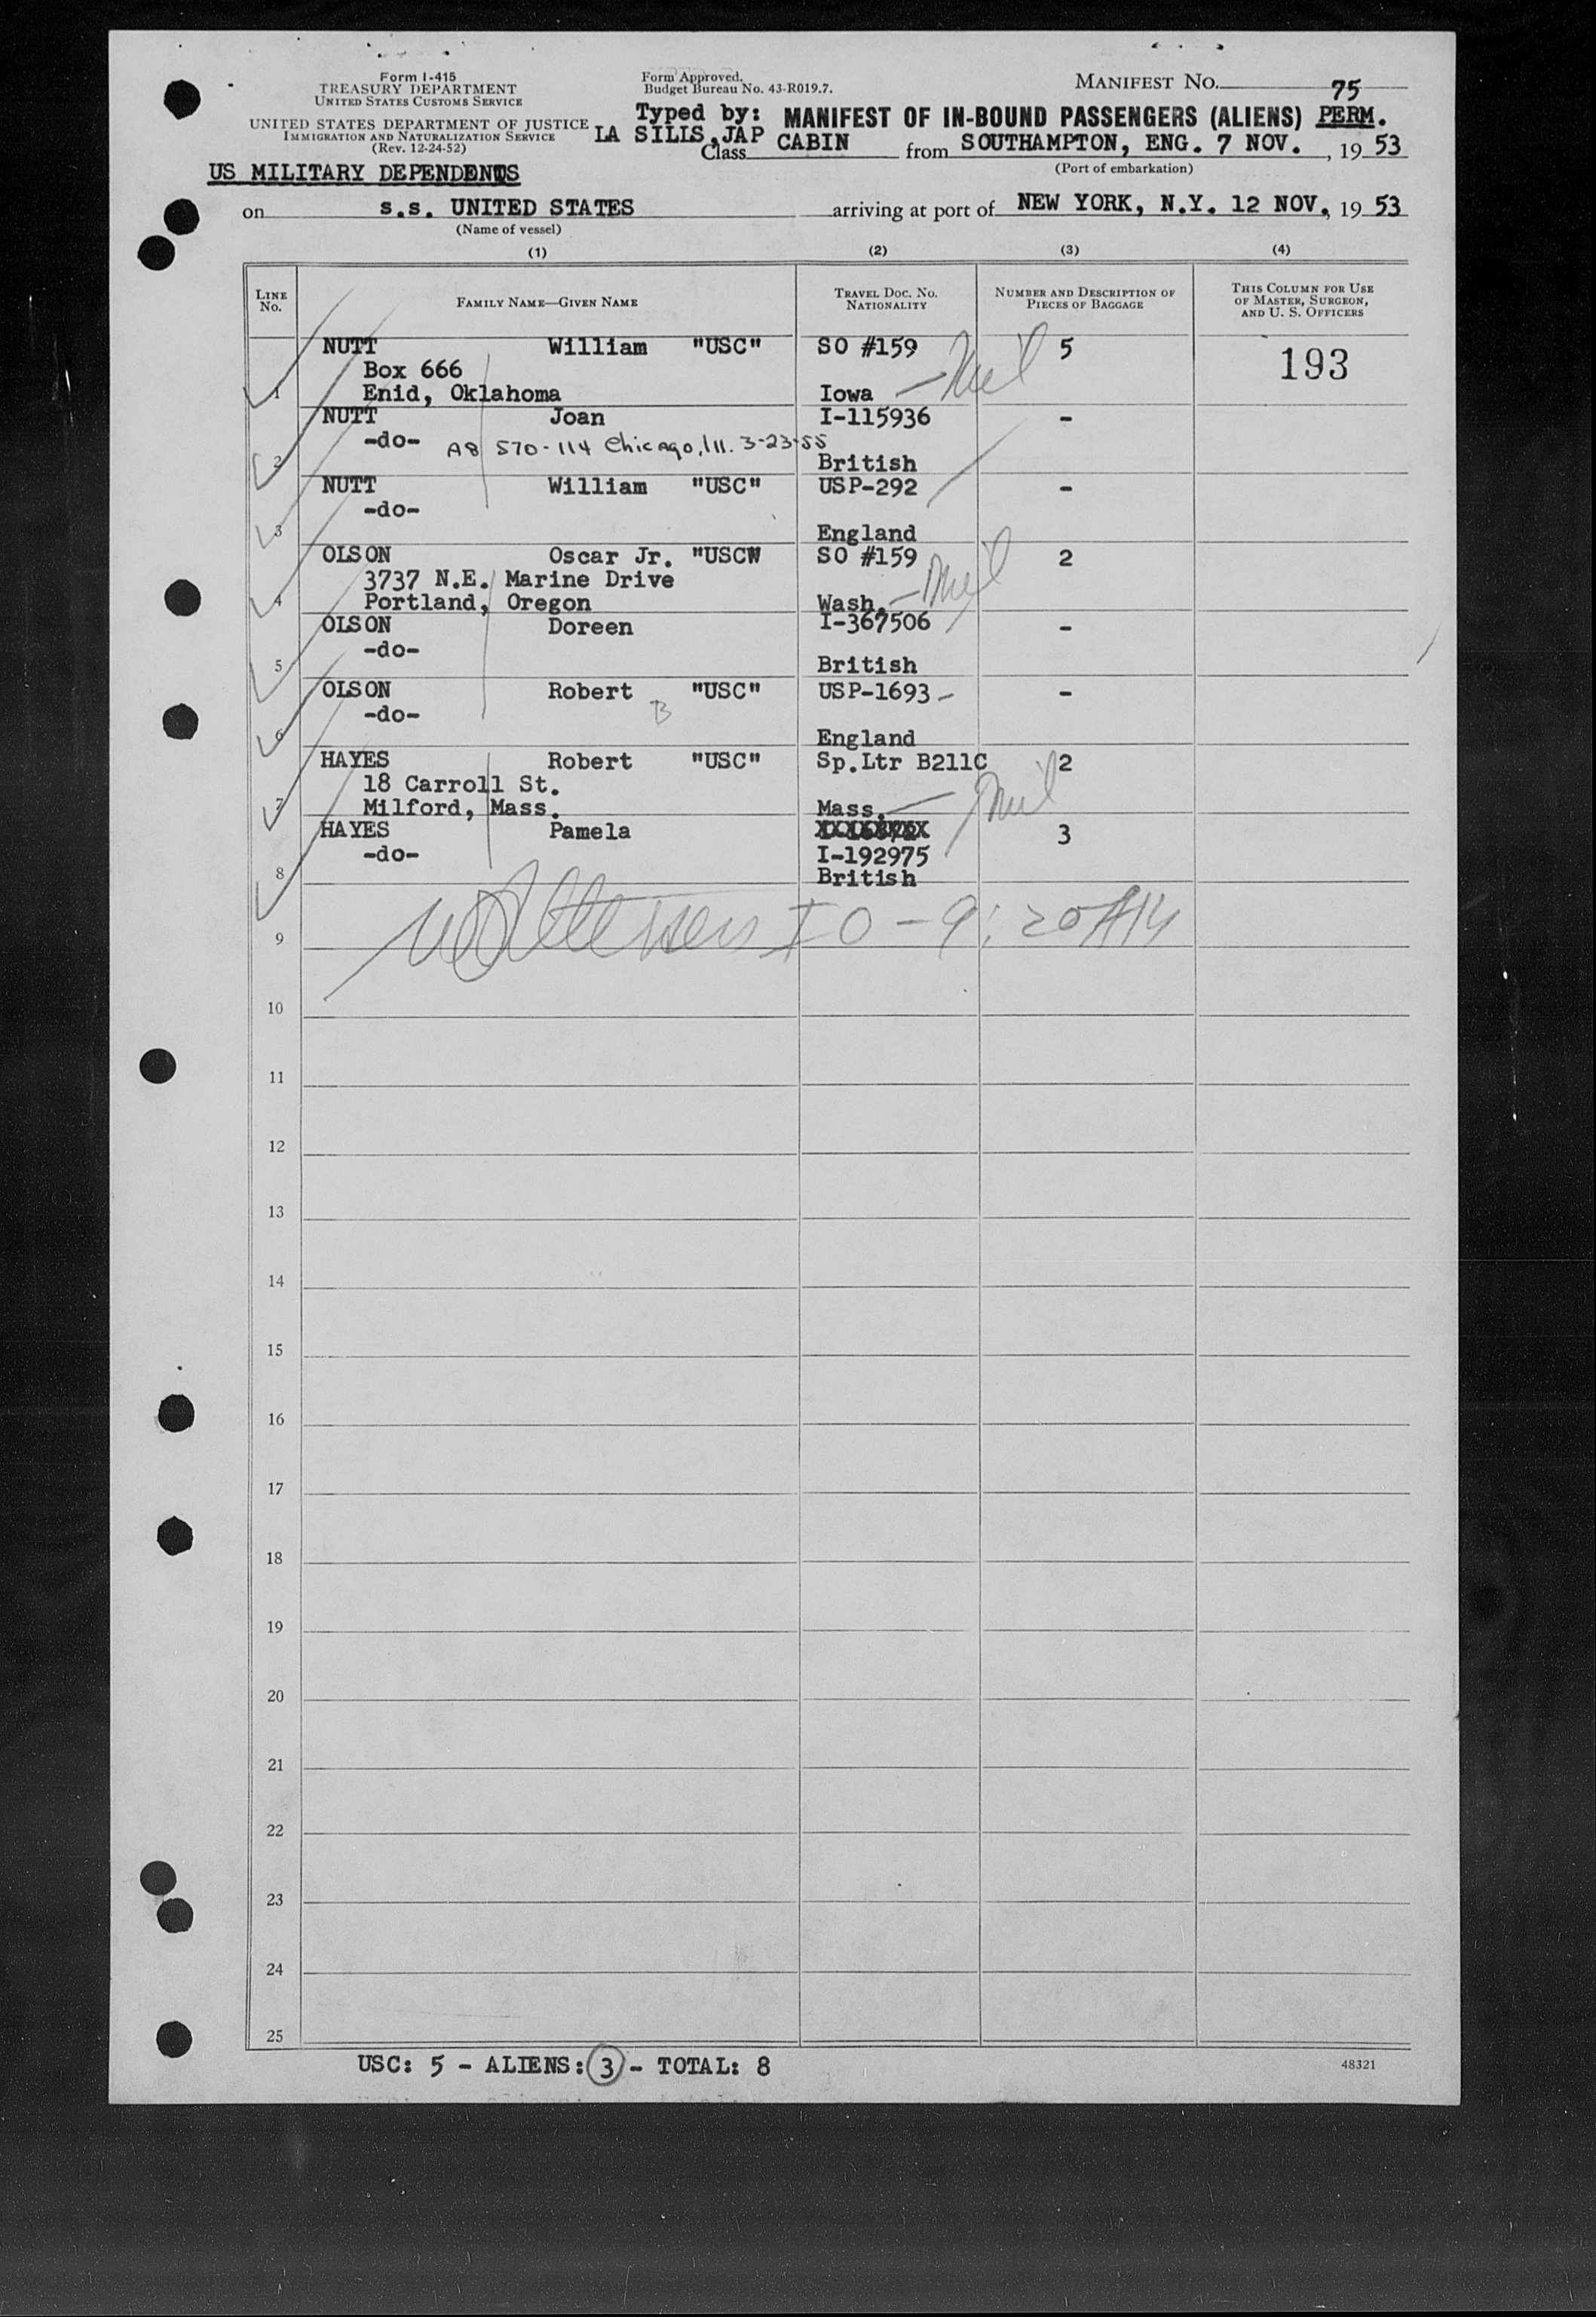 Form I-415
TREASURY DEPARTMENT
UNITED STATES CUSTOMS SERVICE
UNITED STATES DEPARTMENT OF JUSTICE
IMMIGRATION AND NATURALIZATION SERVICE
(Rev. 12-24-52)
Form Approved.
Budget Bureau No. 43-R019.7.
MANIFEST NO. 75
Typed by: MANIFEST OF IN-BOUND PASSENGERS (ALIENS) PERM.
LA SILIS, JAP Class CABIN from SOUTHAMPTON, ENG. 7 NOV. , 19 53
(Port of embarkation)
US MILITARY DEPENDENTS
on s.s. UNITED STATES arriving at port of NEW YORK, N.Y. 12 NOV, 19 53
(Name of vessel)
(1) (2) (3) (4)
LINE NO. FAMILY NAME—GIVEN NAME TRAVEL DOC. NO. NATIONALITY NUMBER AND DESCRIPTION OF PIECES OF BAGGAGE THIS COLUMN FOR USE OF MASTER, SURGEON, AND U. S. OFFICERS
NUTT William "USC" SO #159 5 193
Box 666
1 Enid, Oklahoma Iowa – Mil
NUTT Joan I-115936 -
-do- A8 570-114 Chicago, Ill. 3-23-55
2 British
NUTT William "USC" USP-292 -
-do-
3 England
OLSON Oscar Jr. "USCW SO #159 2
3737 N.E. Marine Drive
4 Portland, Oregon Wash. – Mil
OLSON Doreen I-367506 -
-do-
5 British
OLSON Robert "USC" USP-1693 – -
-do- B
6 England
HAYES Robert "USC" Sp.Ltr B211C 2
18 Carroll St.
7 Milford, Mass. Mass. – Mil
HAYES Pamela 3
-do- I-192975
8 British
9 IO – 9:20 AM
10
11
12
13
14
15
16
17
18
19
20
21
22
23
24
25
USC: 5 - ALIENS: 3 - TOTAL: 8
48321